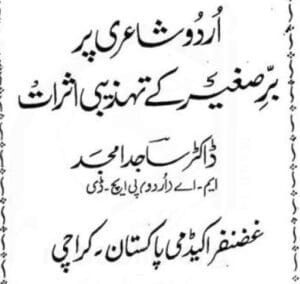 اُردو شاعری پر
برِّصغیر کے تہذیبی اثرات
ڈاکٹر ساجد امجد
ایم۔اے (اردو) پی ایچ۔ڈی
غضنفر اکیڈمی پاکستان۔کراچی